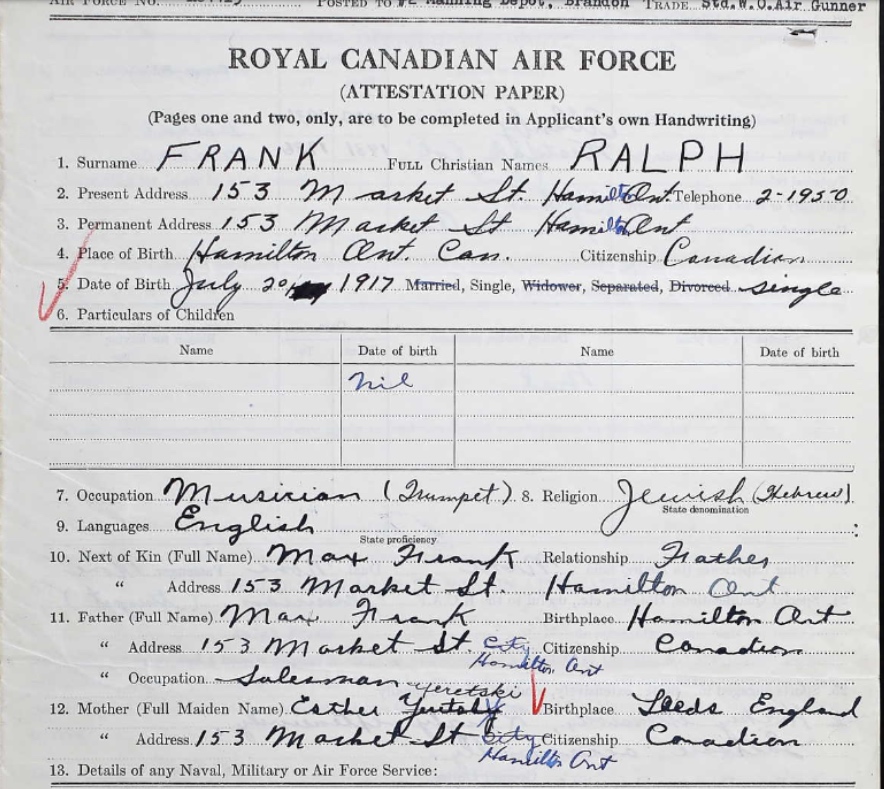 POSTED TO Manning Depot, Brandon TRADE Std.W.O.Air Gunner
ROYAL CANADIAN AIR FORCE
(ATTESTATION PAPER)
(Pages one and two, only, are to be completed in Applicant's own Handwriting)
1. Surname FRANK FULL Christian Names RALPH
2. Present Address 153 Market St. Hamilton Ont. Telephone 2-1950
3. Permanent Address 153 Market St Hamilton Ont
4. Place of Birth Hamilton Ont. Can. Citizenship Canadian
5. Date of Birth July 20 1917 Married, Single, Widower, Separated, Divorced single
6. Particulars of Children
Name Date of birth Name Date of birth
nil
7. Occupation Musician (Trumpet) 8. Religion Jewish (Hebrew)
State denomination
9. Languages English
State proficiency
10. Next of Kin (Full Name) Max Frank Relationship Father
" Address 153 Market St. Hamilton Ont
11. Father (Full Name) Max Frank Birthplace Hamilton Ont
" Address 153 Market St. City Citizenship Canadian
Hamilton Ont
" Occupation Salesman
12. Mother (Full Maiden Name) Esther Birthplace Leeds England
" Address 153 Market St City Citizenship Canadian
Hamilton Ont
13. Details of any Naval, Military or Air Force Service: